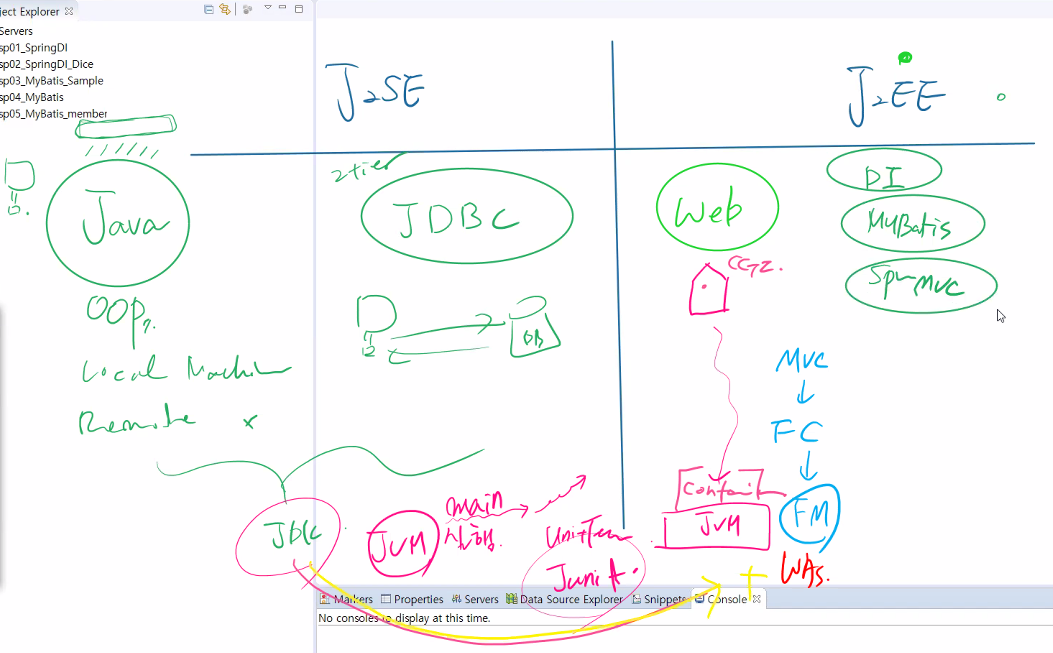 ject Explorer
Servers
sp01_SpringDI
sp02_SpringDI_Dice
sp03_MyBatis_Sample
sp04_MyBatis
sp05_MyBatis_member
J2SE
J2EE
Java
OOP
Local Machin
Remote x
2tier
JDBC
DB
Web
DI
MyBatis
Spr MVC
MVC
FC
FM
WAS.
Contain
JVM
JVM
main
실행.
Unit Test
JUnit
Markers
Properties
Servers
Data Source Explorer
Snippets
Console
No consoles to display at this time.